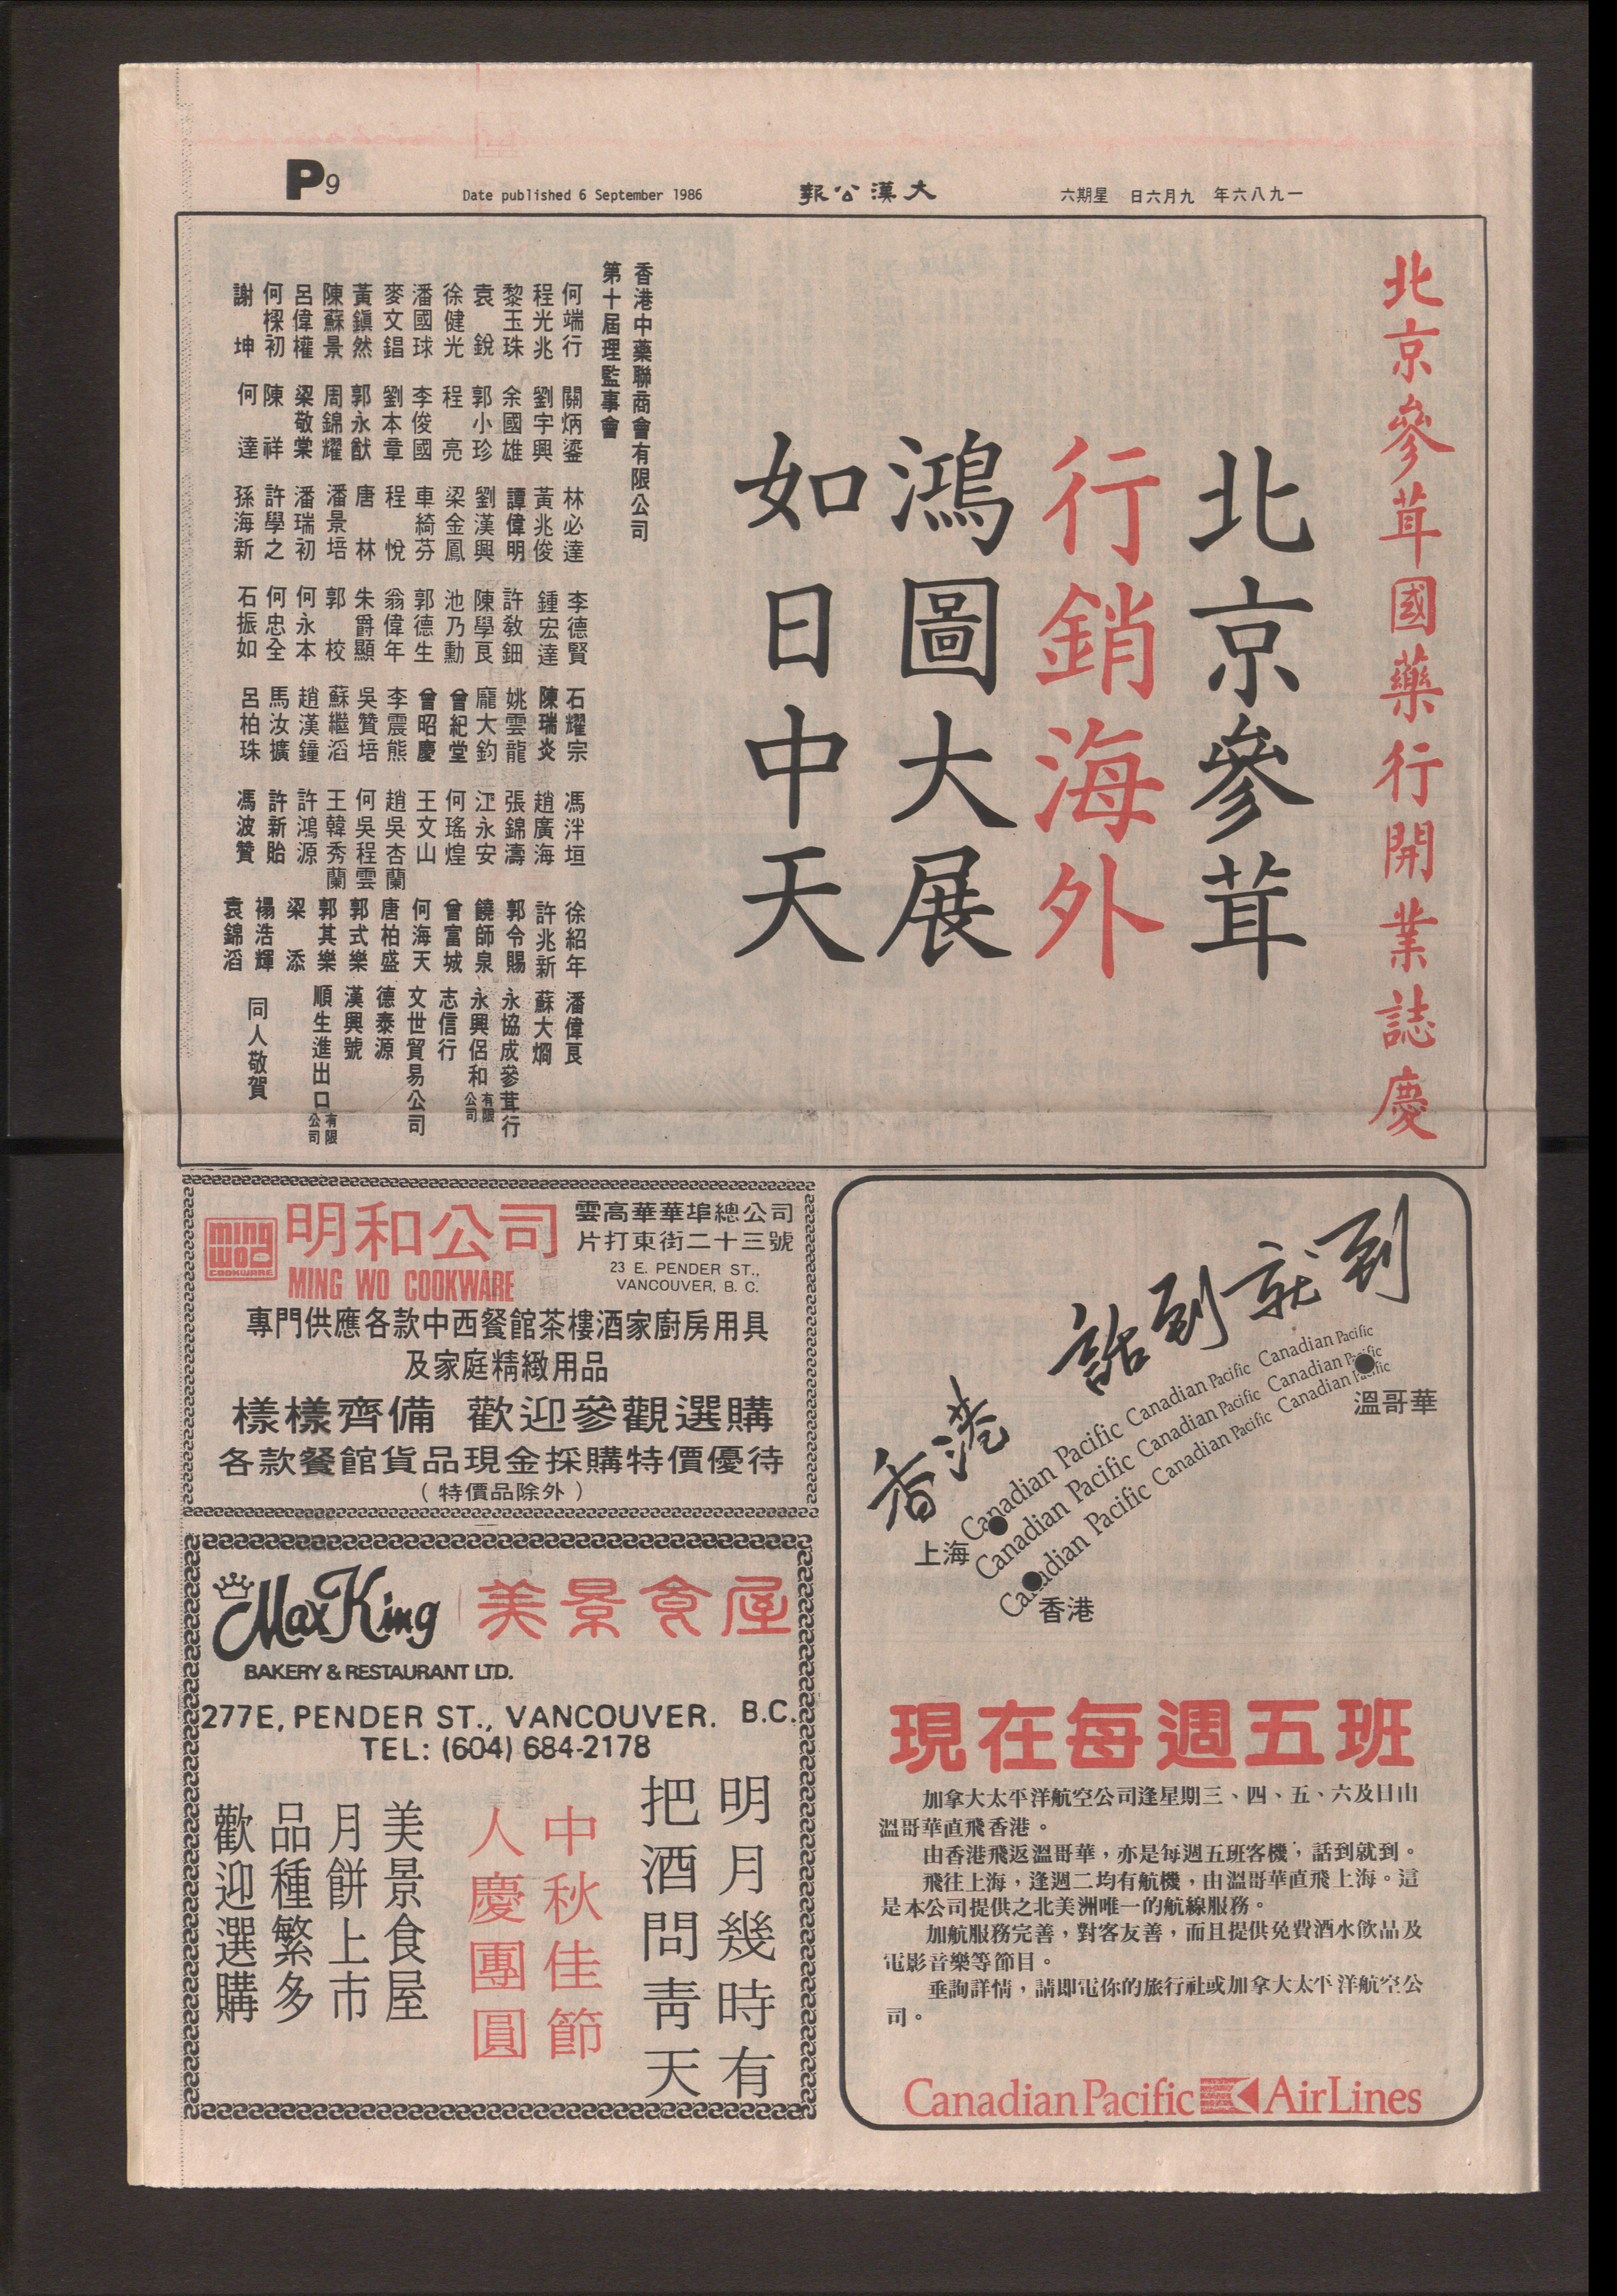 P9
Date published 6 September 1986
大漢公報
一九八六年 九月六日 星期六
北京參茸國藥行開業誌慶
北京參茸
行銷海外
鴻圖大展
如日中天
香港中藥聯商會有限公司
第十屆理監事會
何端行 關炳鎏 林必達 李德賢 石耀宗 馮泮垣 徐紹年 潘偉良
程光兆 劉宇興 黃兆俊 鍾宏達 陳瑞炎 趙廣海 許兆新 蘇大燜
黎玉珠 余國雄 譚偉明 許敎鈿 姚雲龍 張錦濤 郭令賜 永協成參茸行
袁銳 郭小珍 劉漢興 陳學良 龐大鈞 江永安 饒師泉 永興侶和有限公司
徐健光 程亮 梁金鳳 池乃勳 曾紀堂 何瑤煌 曾富城 志信行
潘國球 李俊國 車綺芬 郭德生 曾昭慶 王文山 何海天 文世貿易公司
麥文錩 劉本章 程悅 翁偉年 李震熊 趙吳杏蘭 唐柏盛 德泰源
黃鎭然 郭永猷 唐林 朱爵顯 吳贊培 何吳程雲 郭式樂 漢興號
陳蘇景 周錦耀 潘景培 郭校 蘇繼滔 王韓秀蘭 郭其樂 順生進出口有限公司
呂偉權 梁敬棠 潘瑞初 何永本 趙漢鐘 許鴻源 梁添
何樑初 陳祥 許學之 何忠全 馬汝擴 許新貽 禤浩輝
謝坤 何達 孫海新 石振如 呂柏珠 馮波贊 袁錦滔
同人敬賀
ming wo COOKWARE
明和公司
MING WO COOKWARE
雲高華華埠總公司
片打東街二十三號
23 E. PENDER ST.,
VANCOUVER, B. C.
專門供應各款中西餐館茶樓酒家廚房用具
及家庭精緻用品
樣樣齊備 歡迎參觀選購
各款餐館貨品現金採購特價優待
（特價品除外）
Max King
美景食屋
BAKERY & RESTAURANT LTD.
277E, PENDER ST., VANCOUVER. B.C.
TEL: (604) 684-2178
明月幾時有
把酒問靑天
中秋佳節
人慶團圓
美景食屋
月餅上市
品種繁多
歡迎選購
香港 話到就到
Canadian Pacific Canadian Pacific Canadian Pacific
Canadian Pacific Canadian Pacific Canadian Pacific
Canadian Pacific Canadian Pacific Canadian Pacific
溫哥華
上海
香港
現在每週五班
加拿大太平洋航空公司逢星期三、四、五、六及日由
溫哥華直飛香港。
由香港飛返溫哥華，亦是每週五班客機，話到就到。
飛往上海，逢週二均有航機，由溫哥華直飛上海。這
是本公司提供之北美洲唯一的航線服務。
加航服務完善，對客友善，而且提供免費酒水飲品及
電影音樂等節目。
垂詢詳情，請即電你的旅行社或加拿大太平洋航空公
司。
Canadian Pacific AirLines